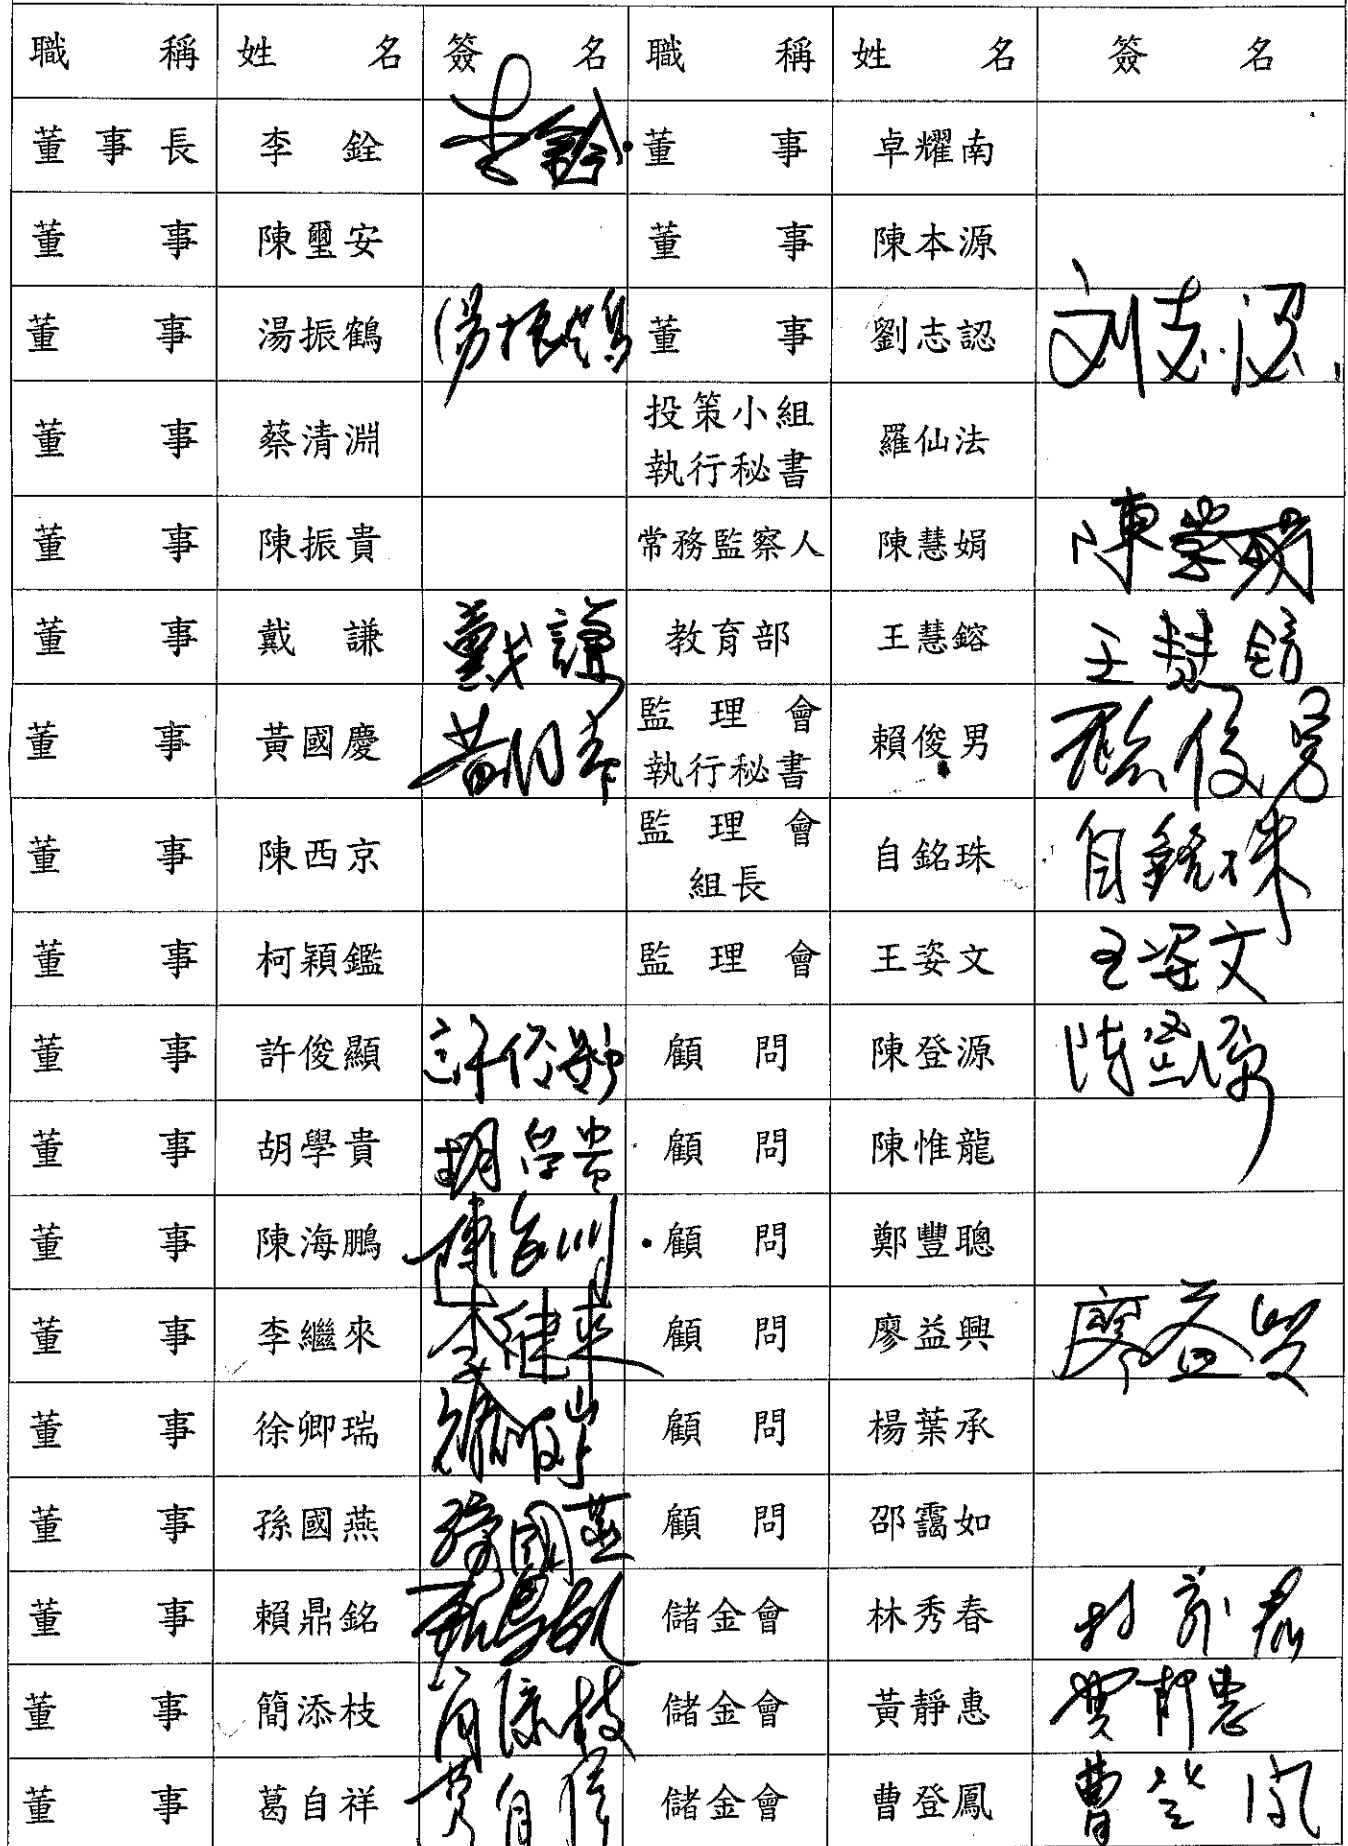 職稱 姓名 簽名 職稱 姓名 簽名
董事長 李銓 李銓 董事 卓耀南
董事 陳璽安 董事 陳本源
董事 湯振鶴 湯振鶴 董事 劉志認 刘志認
董事 蔡清淵 投策小組 執行秘書 羅仙法
董事 陳振貴 常務監察人 陳慧娟 陳
董事 戴謙 戴謙 教育部 王慧鎔 王慧鎔
董事 黃國慶 黃国慶 監理會 執行秘書 賴俊男 賴俊男
董事 陳西京 監理會 組長 自銘珠 自銘珠
董事 柯穎鑑 監理會 王姿文 王姿文
董事 許俊顯 許俊顯 顧問 陳登源 陳登源
董事 胡學貴 胡學貴 顧問 陳惟龍
董事 陳海鵬 陳 顧問 鄭豐聰
董事 李繼來 李継來 顧問 廖益興 廖益興
董事 徐卿瑞 徐 顧問 楊葉承
董事 孫國燕 孫國燕 顧問 邵靄如
董事 賴鼎銘 儲金會 林秀春 林
董事 簡添枝 簡添枝 儲金會 黃靜惠 黃靜惠
董事 葛自祥 葛自祥 儲金會 曹登鳳 曹登鳳